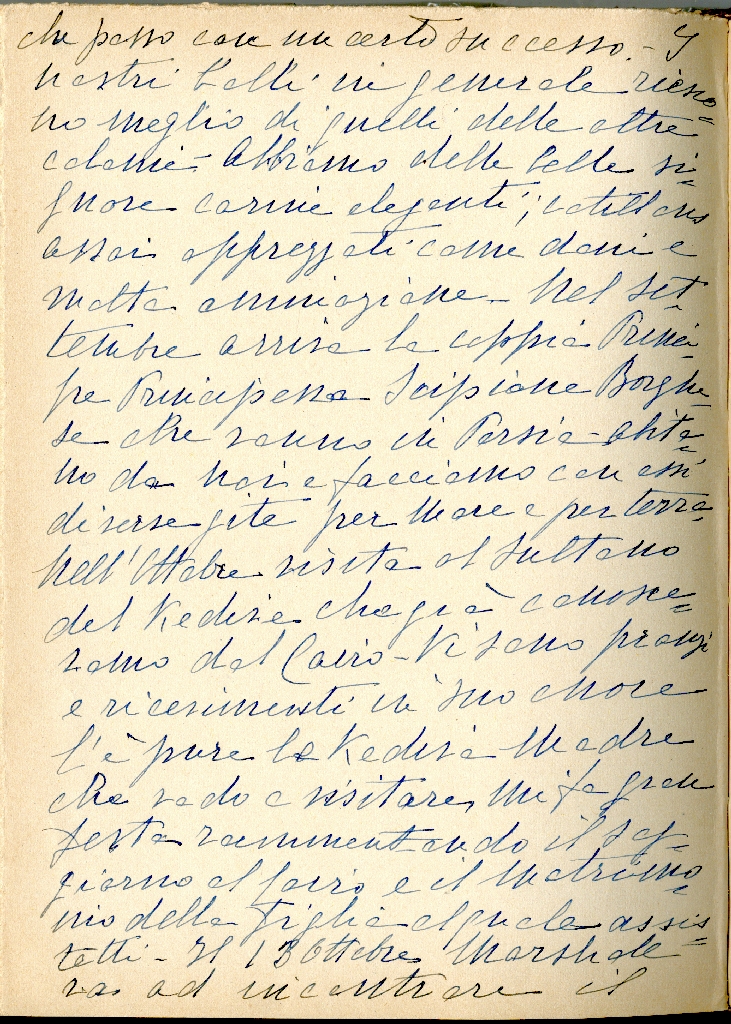 che passo con un certo successo. - I
nostri balli in generale riesco=
no meglio di quelli delle altre
colonie - Abbiamo delle belle si=
gnore carine eleganti, i cotillons
assai apprezzati come doni e
molta animazione - Nel set=
tembre arriva la coppia Princi=
pe Principessa Scipione Borghe=
se che vanno in Persia - abita=
no da noi e facciamo con essi
diverse gite per mare e per terra.
Nell'Ottobre visita al Sultano
del Kedive che già conosce=
vamo dal Cairo - Vi sono pranzi
e ricevimenti in suo onore
c'è pure la Kediva Madre
che vado a visitare, mi fa gran
festa rammentando il sog=
giorno al Cairo e il matrimo=
nio della figlia al quale assis=
tetti - Il 13 Ottobre Marshall
va ad incontrare il